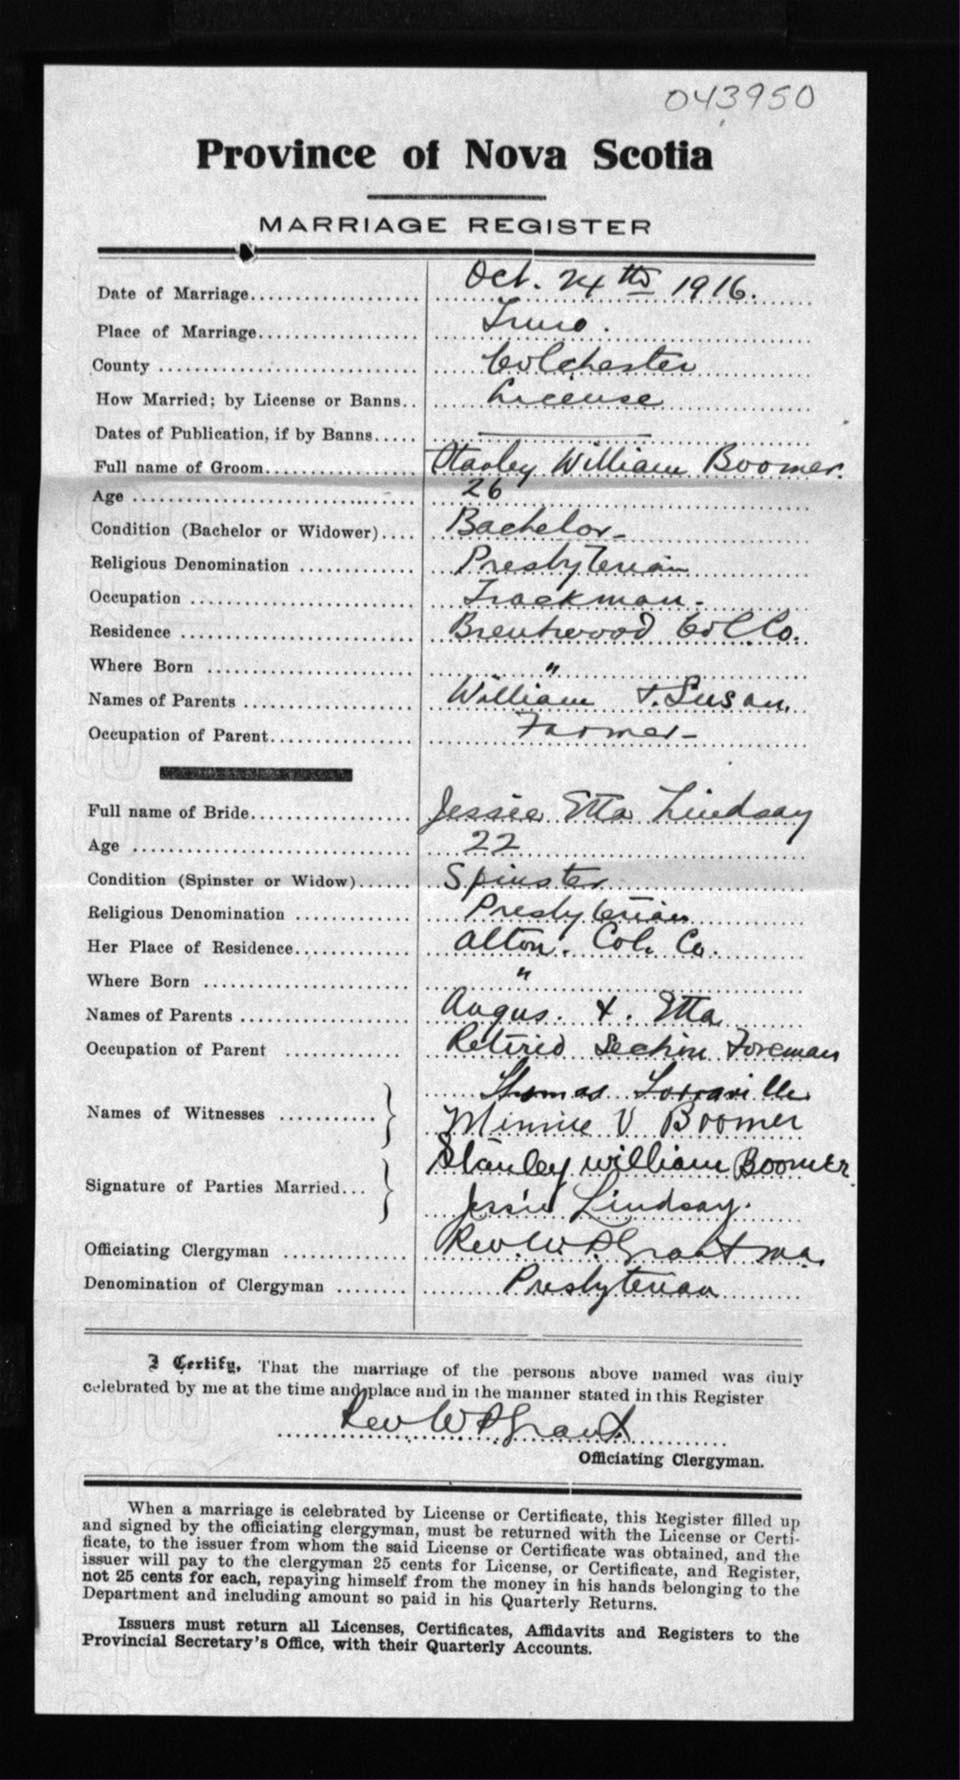 043950
Province of Nova Scotia
MARRIAGE REGISTER
Date of Marriage.................... Oct. 24th 1916.
Place of Marriage.................... Truro.
County .................... Colchester
How Married; by License or Banns.. License
Dates of Publication, if by Banns..... ———
Full name of Groom.................... Stanley William Boomer.
Age .................... 26
Condition (Bachelor or Widower).... Bachelor
Religious Denomination ............ Presbyterian
Occupation .................... Trackman
Residence .................... Brentwood Col Co.
Where Born .................... "
Names of Parents .................... William & Susan
Occupation of Parent................ Farmer
Full name of Bride.................... Jessie Etta Lindsay
Age .................... 22
Condition (Spinster or Widow)...... Spinster
Religious Denomination ............ Presbyterian
Her Place of Residence............ Alton. Col. Co.
Where Born .................... "
Names of Parents .................... Angus. &. Etta
Occupation of Parent ............ Retired Section Foreman
Thomas
Names of Witnesses ........... Minnie V Boomer
Stanley William Boomer
Signature of Parties Married... Jessie Lindsay.
Officiating Clergyman ............ Rev. W. P. Grant M.A.
Denomination of Clergyman ........ Presbyterian
I Certify, That the marriage of the persons above named was duly
celebrated by me at the time and place and in the manner stated in this Register
Rev W P Grant
Officiating Clergyman.
When a marriage is celebrated by License or Certificate, this Register filled up
and signed by the officiating clergyman, must be returned with the License or Certi-
ficate, to the issuer from whom the said License or Certificate was obtained, and the
issuer will pay to the clergyman 25 cents for License, or Certificate, and Register,
not 25 cents for each, repaying himself from the money in his hands belonging to the
Department and including amount so paid in his Quarterly Returns.
Issuers must return all Licenses, Certificates, Affidavits and Registers to the
Provincial Secretary's Office, with their Quarterly Accounts.